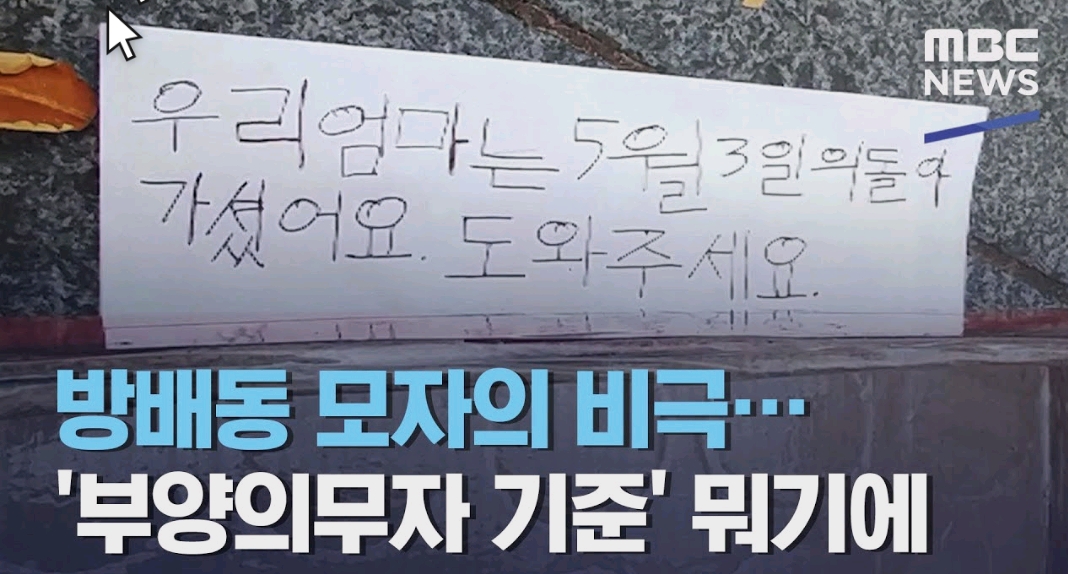 MBC
NEWS
우리엄마는 5월3일의돌아
가셨어요. 도와주세요.
방배동 모자의 비극…
'부양의무자 기준' 뭐기에